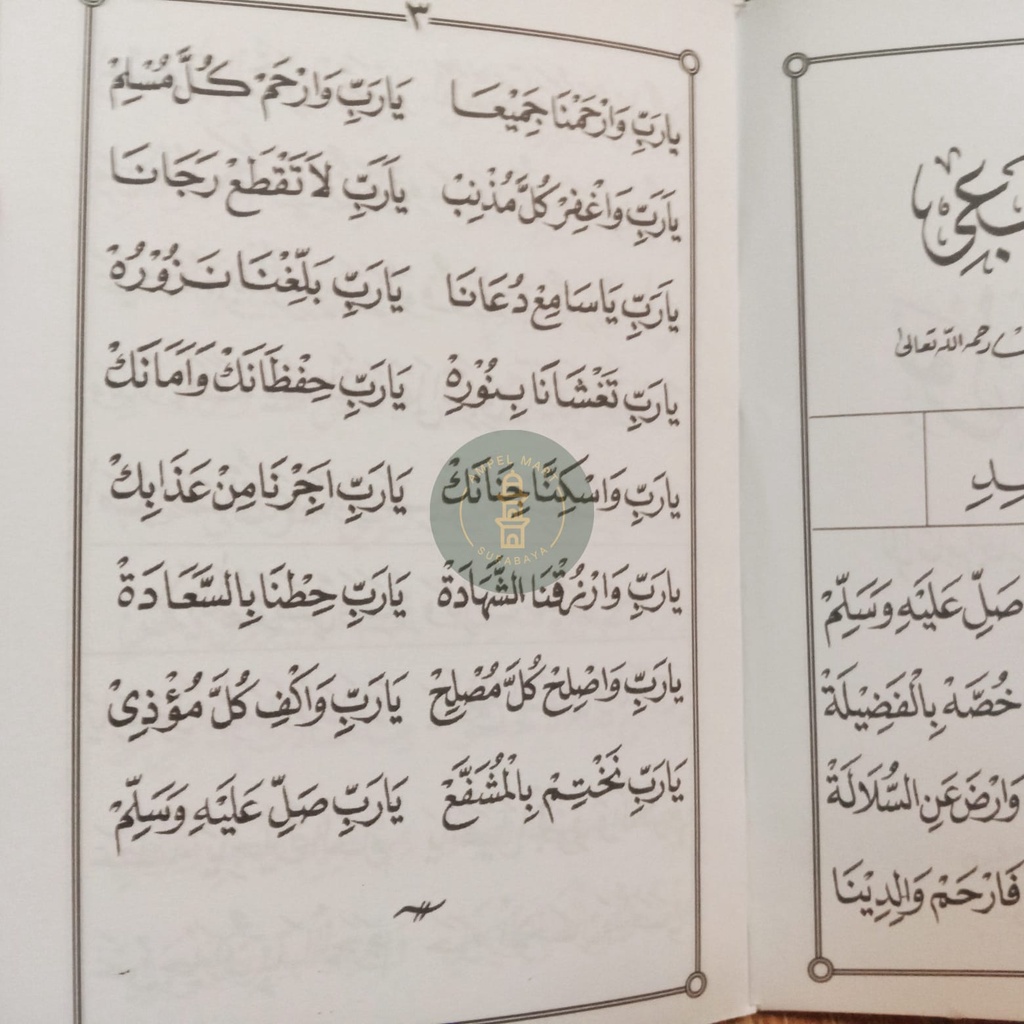 ٣
يَارَبِّ وَارْحَمْنَا جَمِيْعَا يَارَبِّ وَارْحَمْ كُلَّ مُسْلِمْ
يَارَبِّ وَاغْفِرْ كُلَّ مُذْنِبْ يَارَبِّ لَا تَقْطَعْ رَجَانَا
يَارَبِّ يَاسَامِعْ دُعَانَا يَارَبِّ بَلِّغْنَا نَزُوْرُهْ
يَارَبِّ تَغْشَانَا بِنُوْرِهْ يَارَبِّ حِفْظَانَكْ وَاَمَانَكْ
يَارَبِّ وَاسْكِنَّا جِنَانَكْ يَارَبِّ اَجِرْنَا مِنْ عَذَابِكْ
يَارَبِّ وَارْزُقْنَا الشَّهَادَةْ يَارَبِّ حِطْنَا بِالسَّعَادَةْ
يَارَبِّ وَاصْلِحْ كُلَّ مُصْلِحْ يَارَبِّ وَاكْفِ كُلَّ مُؤْذِىْ
يَارَبِّ نَخْتِمْ بِالْمُشَفَّعْ يَارَبِّ صَلِّ عَلَيْهِ وَسَلِّمْ
AMPEL
SURABAYA
رحمه الله تعالى
صَلِّ عَلَيْهِ وَسَلِّمْ
خُصَّهْ بِالْفَضِيْلَةْ
وَارْضَ عَنِ السُّلَالَةْ
فَارْحَمْ وَالِدِيْنَا